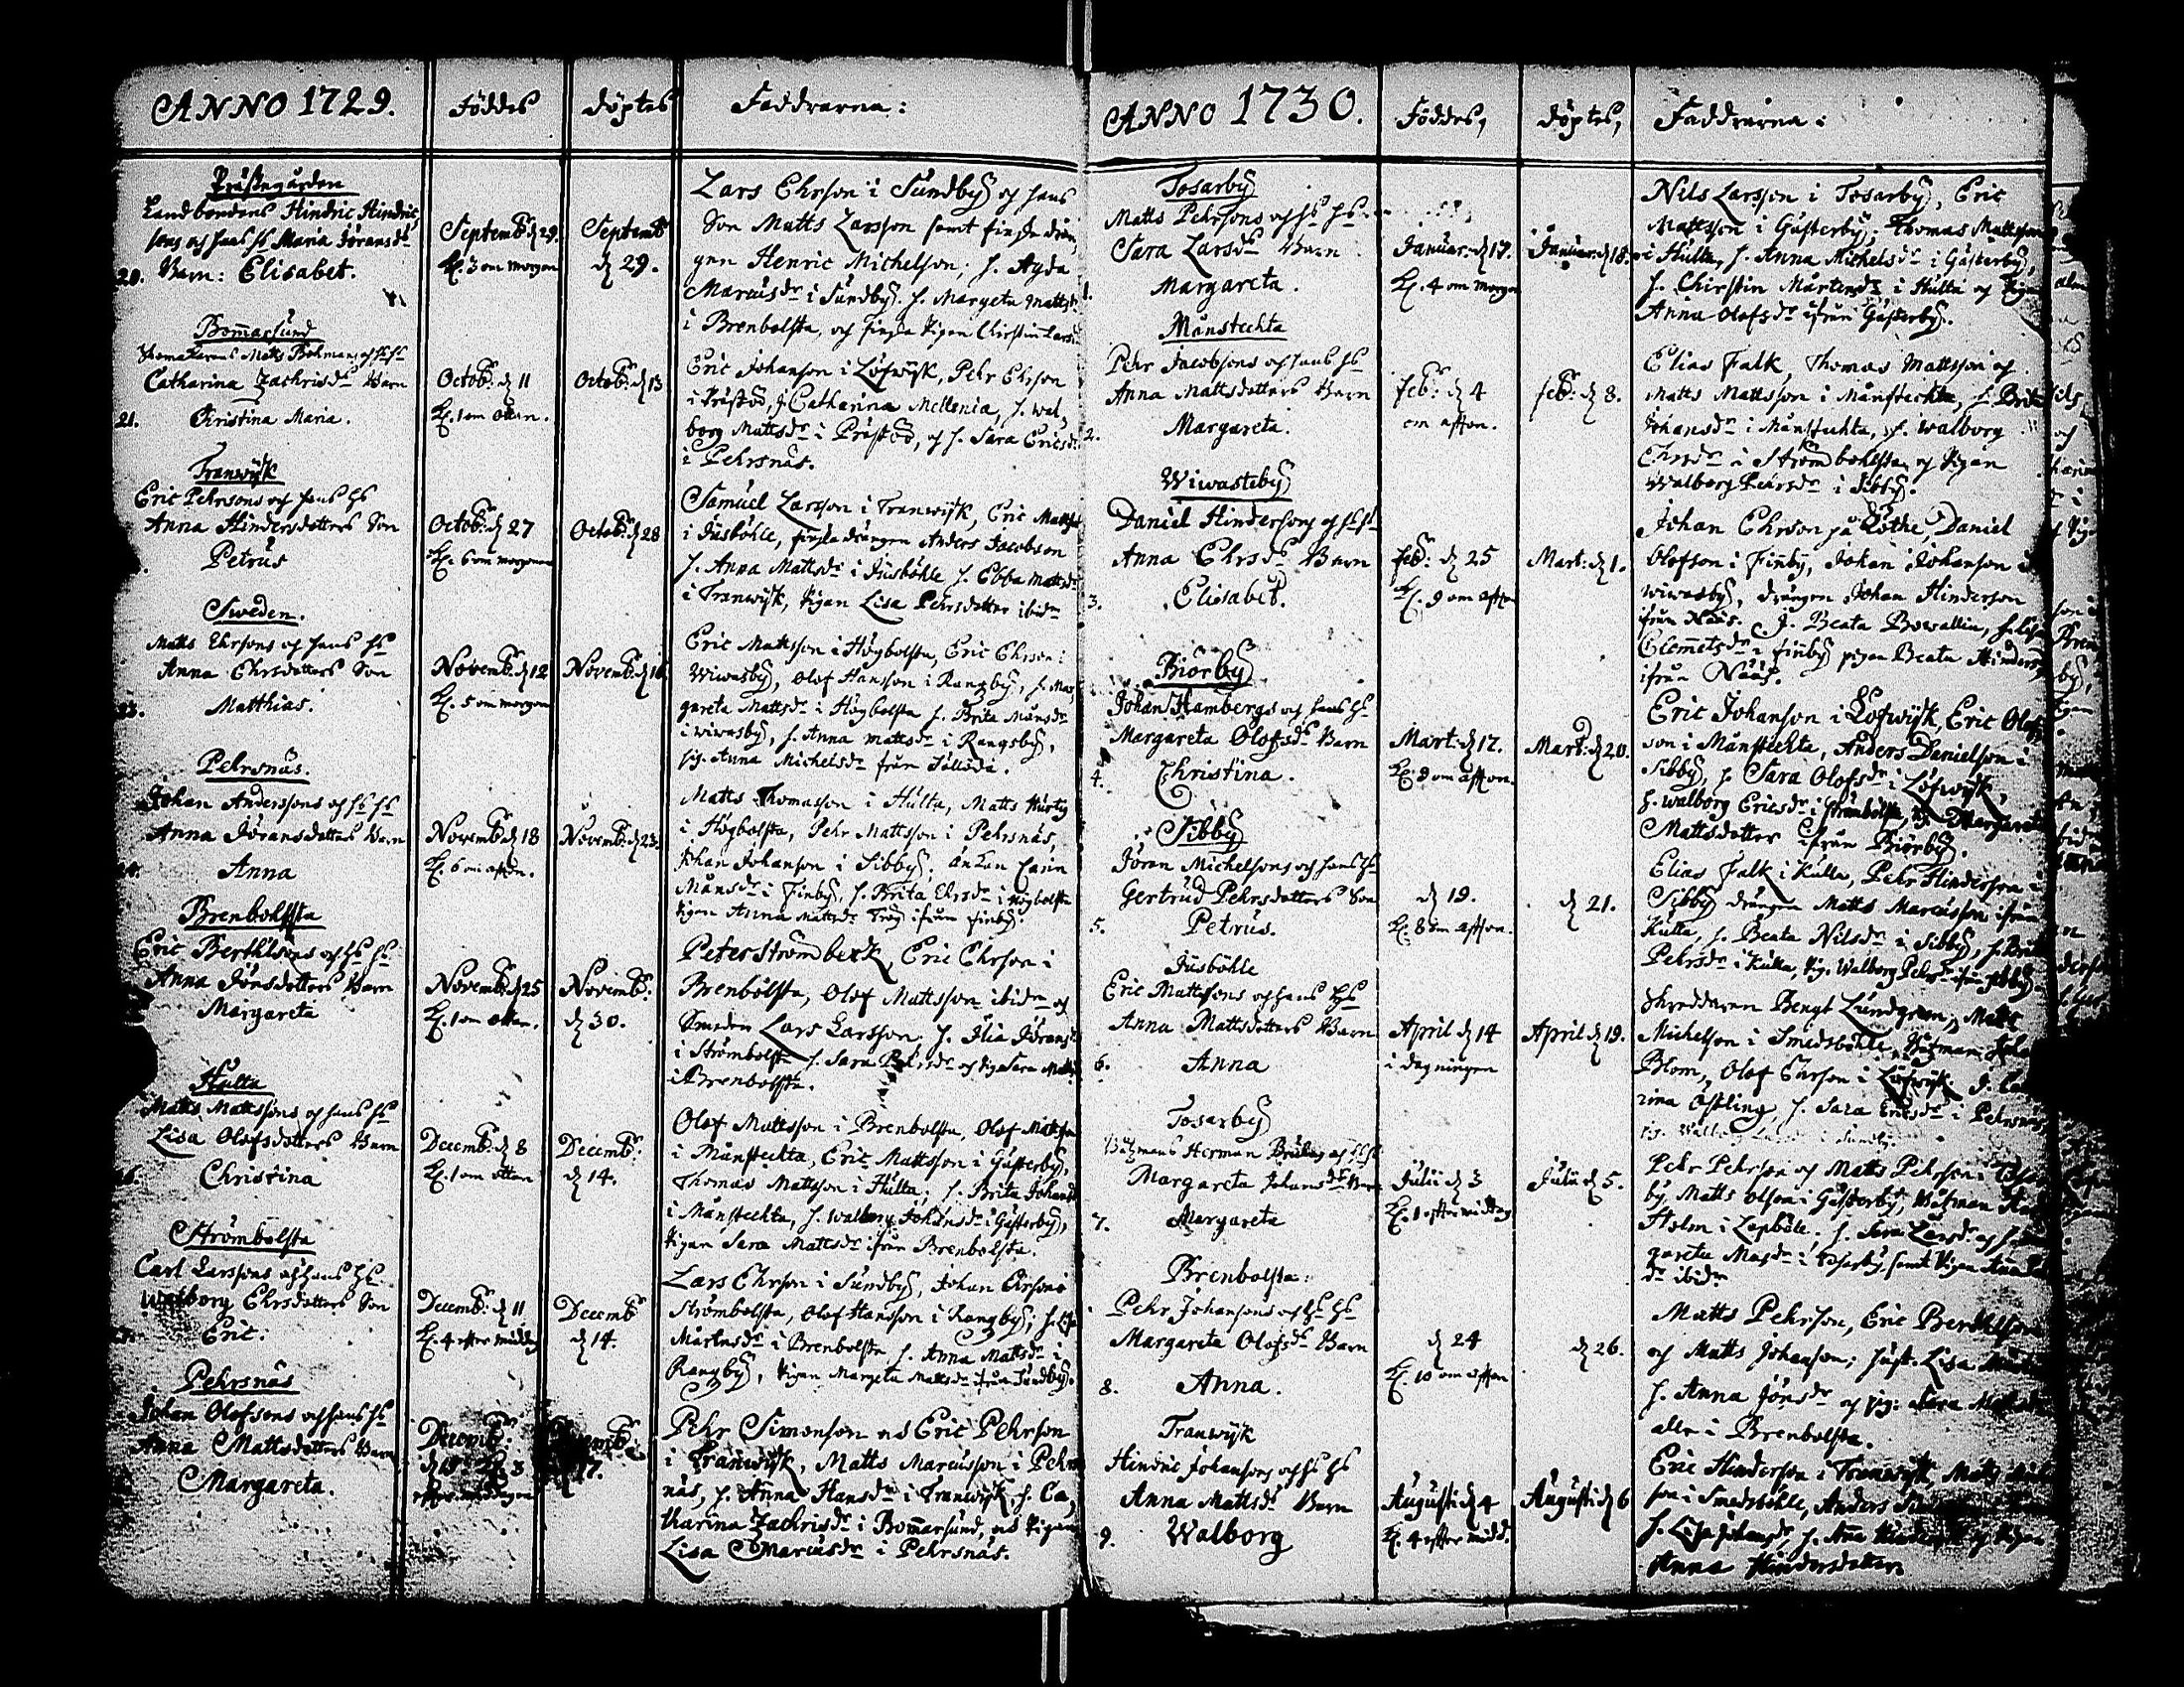 ANNO 1729.
Föddes
döptes
Faddrarna:
Prästegården
Landbondens Hindric Hindric
sons och hans hs Maria Jöransdr
20. Barn: Elisabet.
Septembr: d 29.
Kl. 3 om morgon
Septembr
d 29.
Lars Ehrson i Sundby och hans
Son Matts Larsson samt
Henric Michelson; h. Agda
Marcusdr i Sundby. h. Margeta Mattsdr
i Brenbolsta, och Pigan Chirstin Larsdr
Bomarsund
Matts Bohmans och hs hs
Catharina Zachrisdr Barn
21. Christina Maria.
Octobr: d 11
Kl. 1 om ottan.
Octobr: d 13
Eric Johanson i Löfwijk, Pehr Ehrson
i Prästöö, J. Catharina Mellenia, h. Wal,
borg Mattsdr i Prästöö, och h. Sara Ericsdr
i Pehrsnäs.
Tranwijk
Eric Pehrsons och hans hs
Anna Hindersdotters Son
Petrus
Octobr: d 27
Kl. 6 om morgonen
Octobr: d 28
Samuel Larsson i Tranwijk, Eric Mattson
i Jusböhle, drängen Anders Jacobson
h. Anna Mattsdr i Jusböhle h. Ebba Mattsdr
i Tranwijk, Pigan Lisa Pehrsdotter ibidm
Sweden.
Matts Ehrsons och hans hs
Anna Ehrsdotters Son
23. Matthias.
Novembr: d 12
Kl. 5 om morgon
Novembr: d 16
Eric Mattsson i Högbolsta, Eric Ehrson i
Wiwasby, Olof Hansson i Rangby, h. Mar,
gareta Mattsdr i Högbolsta h. Brita Månsdr
i wiwasby, h. Anna Mattsdr i Rangsby,
pig. Anna Michelsdr från
Pehrsnäs.
Johan Anderssons och hs hs
Anna Jöransdotters Barn
24. Anna
Novembr: d 18
Kl. 6 om aftn.
Novembr: d 23.
Matts Thomasson i Hulta, Matts Hurtig
i Högbolsta, Pehr Mattsson i Pehrsnäs,
Johan Johanson i Sibby; änkan Carin
Månsdr i Finby, h. Brita Ehrsdr i Högbolsta
Pigan Anna Mattsdr ifrån Finby.
Brenbohlsta
Eric Berthilsons och hs hs
Anna Jönsdotters Barn
Margareta
Novembr: d 25
Kl. 1 om ottan.
Novembr:
d 30.
Peter Strömberk, Eric Ehrson i
Brenbolsta, Olof Mattsson ibidm och
Smeden Lars Larsson. h. Jöransdr
i Strömbolsta h. Sara och Pig. Sara
i Brenbolsta.
Hulta
Matts Mattssons och hans hs
Lisa Olofsdotters Barn
26. Christina
Decembr: d 8
Kl. 1 om ottan
Decembr:
d 14.
Olof Mattsson i Brenbolsta, Olof Mattson
i Månstechta, Eric Mattsson i Gästerby,
Thomas Mattson i Hulta; h. Brita Johansdr
i Månstechta, h. Walborg Johansdr i Gästerby,
Pigan Sara Mattsdr ifrån Brenbolsta.
Strömbolsta
Carl Larssons och hans hs
Walborg Ehrsdotters Son
27. Eric.
Decembr: d 11
Kl. 4 efter middag
Decembr
d 14.
Lars Ehrson i Sundby, Johan Ehrson i
Strömbolsta, Olof Hansson i Rangby; h. Lisa
Mårtensdr i Brenbolsta h. Anna Mattsdr i
Rangby, Pigan Margeta Mattsdr från Sundby.
Pehrsnäs
Johan Olofsons och hans hs
Anna Mattsdotters Barn
Margareta.
Decembr:
eftermiddagen
17.
Pehr Simonson och Eric Pehrson
i Tranwijk, Matts Marcusson i Pehrs
näs, h. Anna Hansdr i Tranwijk h. Ca,
tharina Zachrisdr i Bomarsund, och Pigan
Lisa Marcusdr i Pehrsnäs.
ANNO 1730.
Föddes,
döptes,
Faddrarna:
Tosarby
Matts Pehrsons och hs hs
Sara Larsdr Barn
1. Margareta.
Januar: d 17.
Kl. 4 om morgon
Januar: d 18.
Nils Larsson i Tosarby, Eric
Mattsson i Gästerby, Thomas Mattsson
i Hulta, h. Anna Michelsdr i Gästerby,
h. Chirstin Mårtensdr i Hulta och Pigan
Anna Olofsdr ifrån Gästerby.
Månstechta
Pehr Jacobsons och hans hs
Anna Mattsdotters Barn
2. Margareta.
Febr: d 4
om afton.
Febr: d 8.
Elias Falk, Thomas Mattsson och
Matts Mattsson i Månstechta, h. Brita
Johansdr i Månstechta, h. Walborg
Ehrsdr i Strömbohlsta och Pigan
Walborg Pehrsdr i Sibby.
Wiwasteby
Daniel Hindersons och hs hs
Anna Ehrsdr Barn
3. Elisabet.
Febr: d 25
Kl. 9 om afton
Mart: d 1.
Johan Ehrson på Köthe, Daniel
Olofson i Finby, Johan Johanson i
wiwasby, drängen Johan Hinderson
ifrån Nääs. J. Beata Bowallia, h. Lisa
Clemetsdr i Finby pigan Beata Hindersdr
ifrån Nääs.
Biörby
Johan Hambergs och hans hs
Margareta Olofsdr Barn
4. Christina.
Mart: d 17.
Kl. 8 om afton.
Mart: d 20.
Eric Johanson i Löfwijk, Eric Olof,
son i Månstechta, Anders Danielson i
Sibby, h. Sara Olofsdr i Löfwijk,
h. Walborg Ericsdr i Strömbolsta, Margareta
Mattsdotter ifrån Biörby.
Sibby
Jöran Michelsons och hans hs
Gertrud Pehrsdotters Son
5. Petrus.
d 19.
Kl. 8 om afton.
d 21.
Elias Falk i Kulla, Pehr Hinderson i
Sibby drängen Matts Marcusson ifrån
Kulla, h. Beata Nilsdr i Sibby, h. Brita
Pehrsdr i Kulla, Pig. Walborg Pehrsdr ifrån Sibby
Jusböhle
Eric Mattssons och hans hs
Anna Mattsdotters Barn
6. Anna
April d 14
i dagningen
April d 19.
Skreddaren Bengt Lundgren, Matts
Michelson i Smedsböhle, Båtsman Johan
Blom, Olof Ehrson i Löfwijk. J. Catha
rina Östling h. Sara Ericsdr i Pehrsnäs,
Tosarby
Båtzmans Herman och hs hs
Margareta Johansdr Barn
7. Margareta
Julii d 3
Kl. 1 efter middag
Julii d 5.
Pehr Pehrson och Matts Pehrson i Tosar
by, Matts Olson i Gästerby, Båtzman
Holm i Lepböle. h. Sara Larsdr och h. Mar
gareta i Tosarby, samt Pigan
dr ibidm
Brenbolsta:
Pehr Johansons och hs hs
Margareta Olofsdr Barn
8. Anna.
d 24
Kl. 10 om afton
d 26.
Matts Pehrson, Eric Berthilson
och Matts Johanson; hust. Lisa
h. Anna Jönsdr och pig: Sara
alla i Brenbolsta.
Tranwijk
Hindric Johansons och hs hs
Anna Mattsdr Barn
9. Walborg
Augusti d 4
Kl. 4 efter midd.
Augusti d 6
Eric Hinderson i Tranwijk, Matts
son i Smedsböhle, Anders
h. Lisa Johansdr, h. Anna och Pigan
Anna Hindersdotter